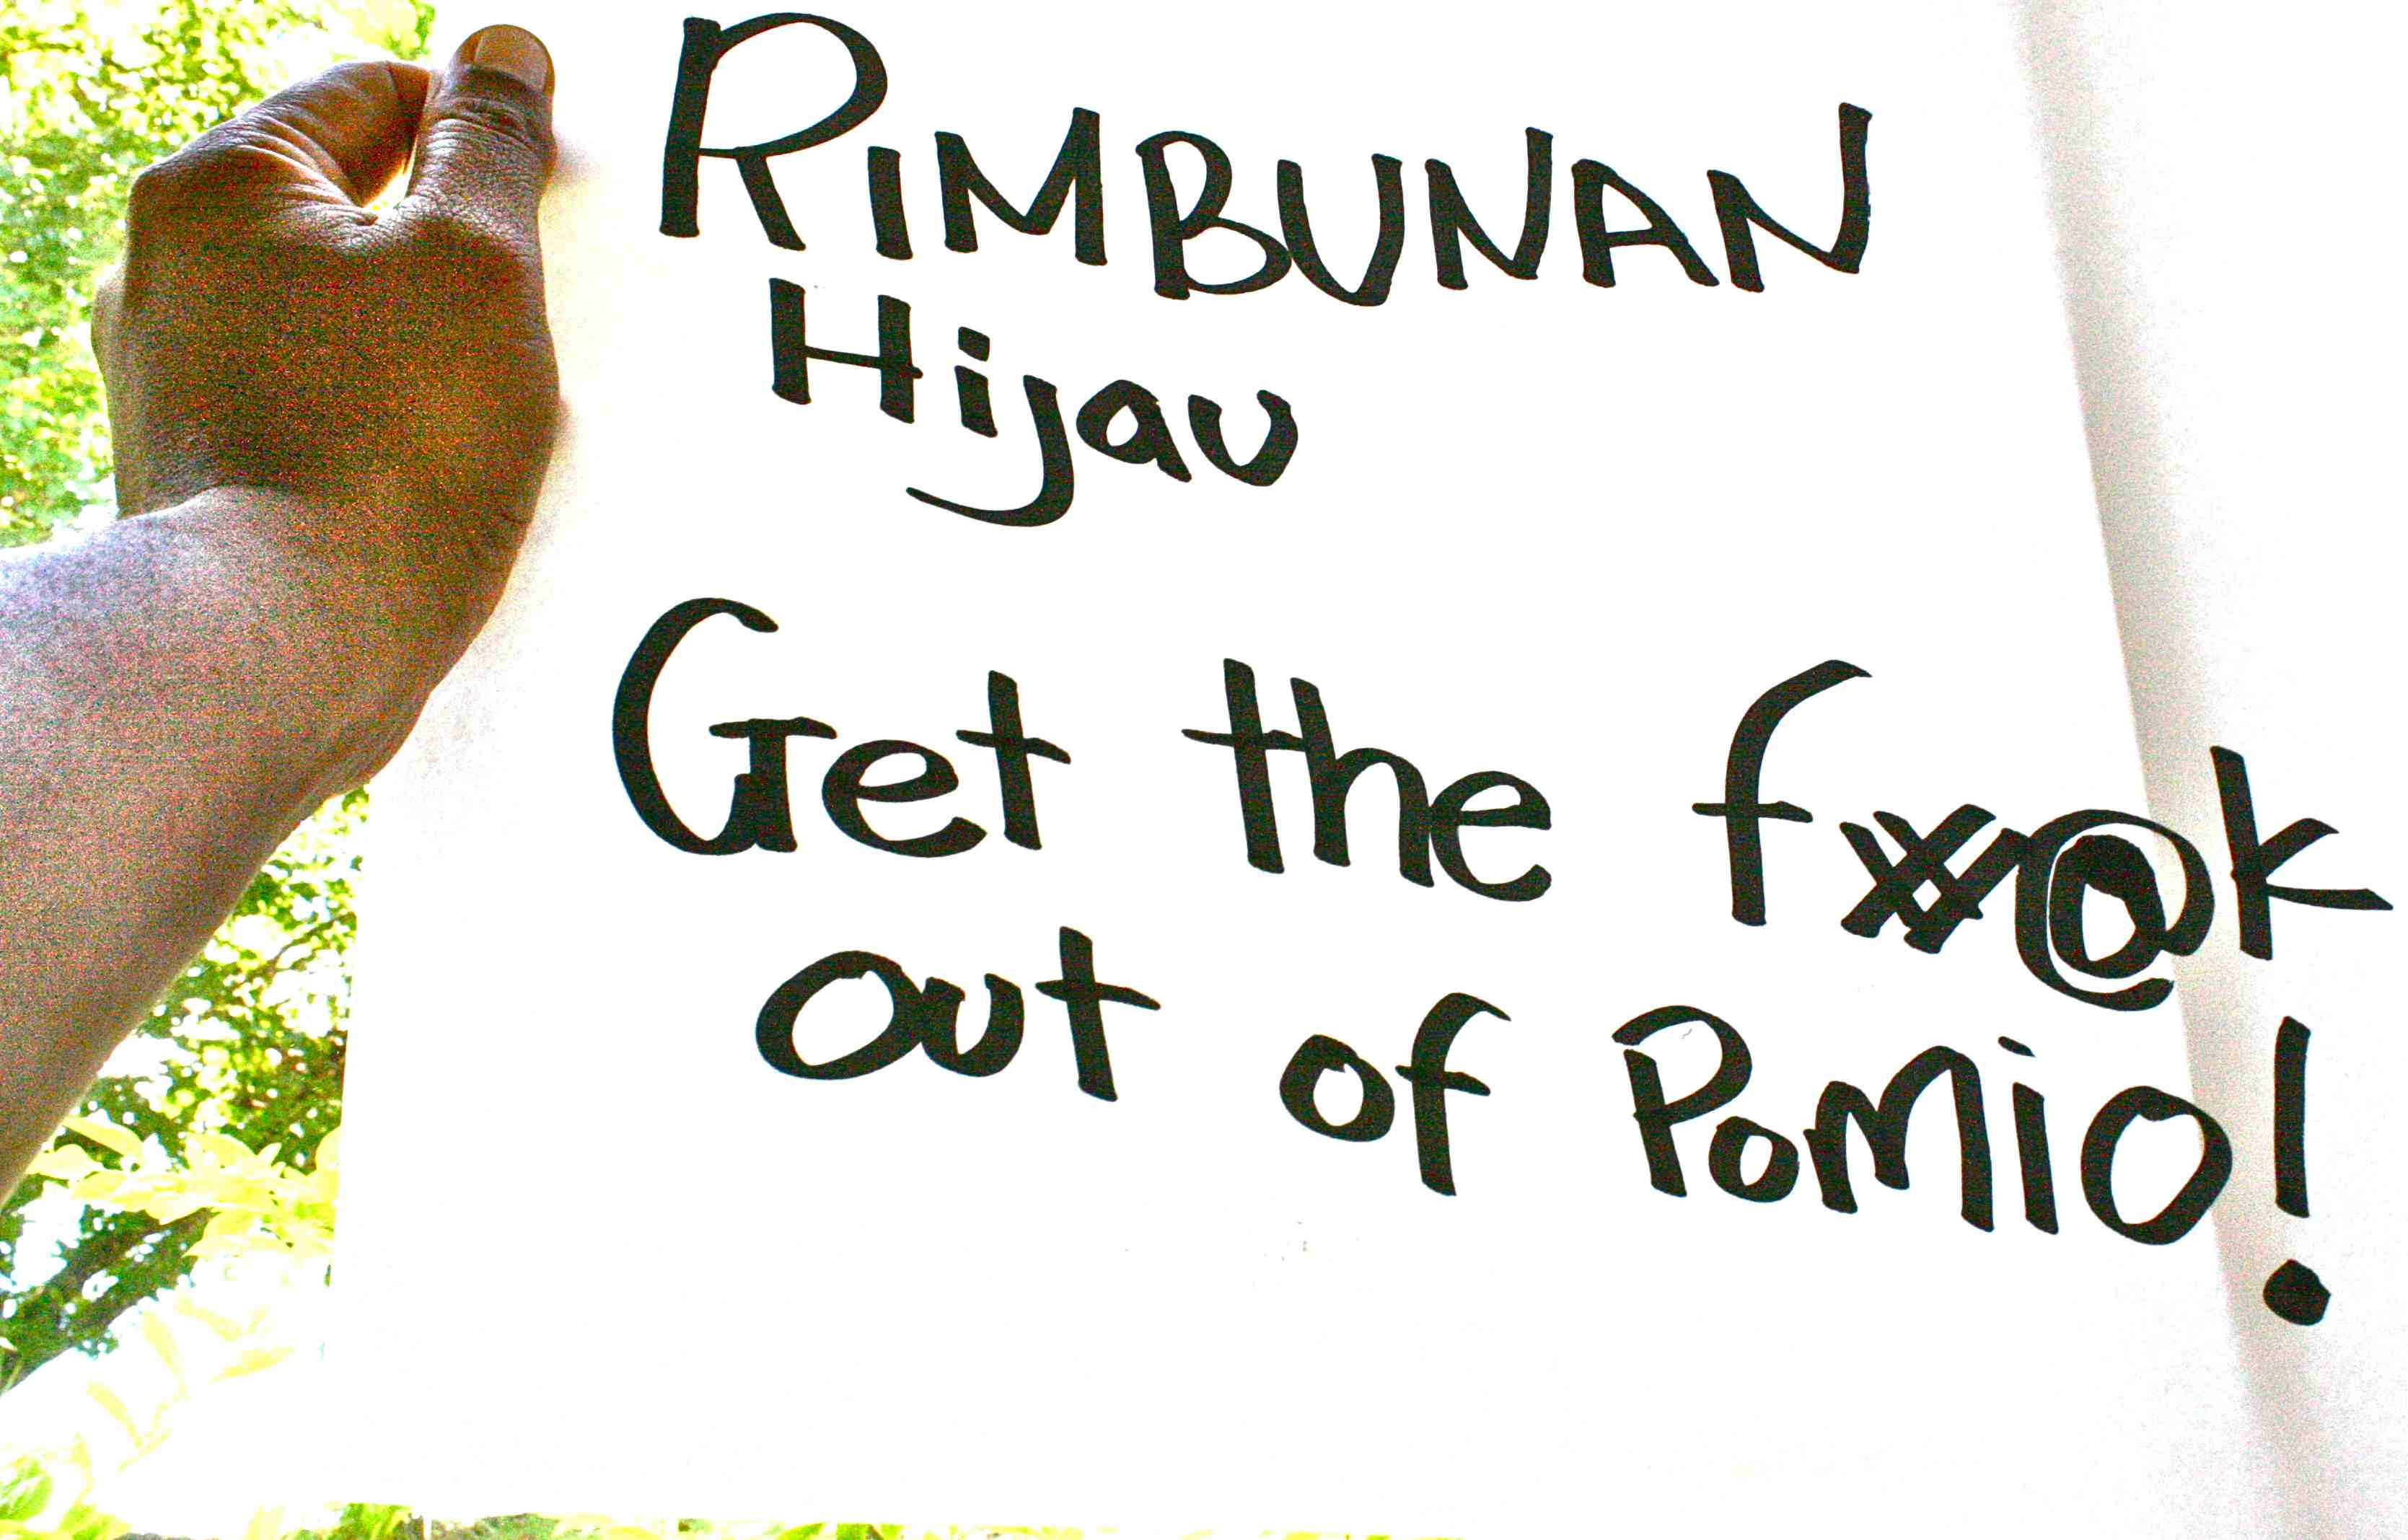 RIMBUNAN
Hijau
Get the f*#@k
out of Pomio!